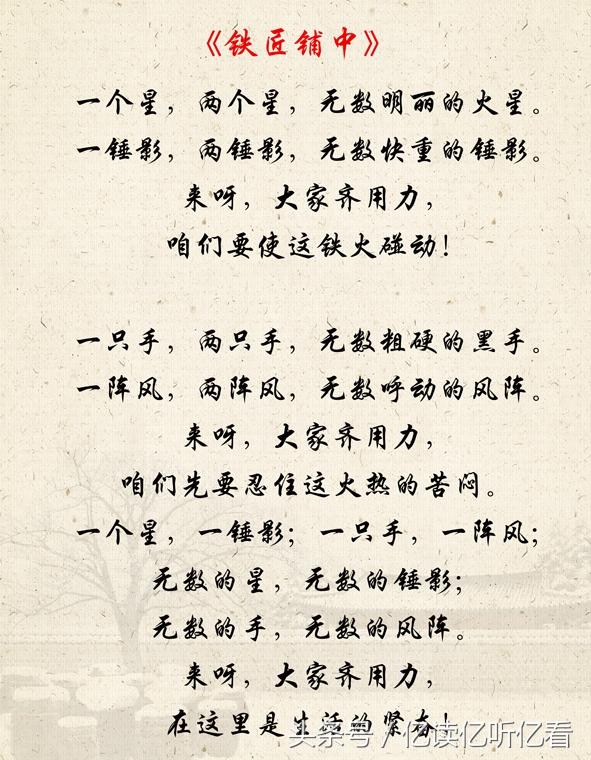 《铁匠铺中》
一个星，两个星，无数明丽的火星。
一锤影，两锤影，无数快重的锤影。
来呀，大家齐用力，
咱们要使这铁火碰动！
一只手，两只手，无数粗硬的黑手。
一阵风，两阵风，无数呼动的风阵。
来呀，大家齐用力，
咱们先要忍住这火热的苦闷。
一个星，一锤影；一只手，一阵风；
无数的星，无数的锤影；
无数的手，无数的风阵。
来呀，大家齐用力，
在这里是生活的紧奋！
头条号／亿读亿听亿看